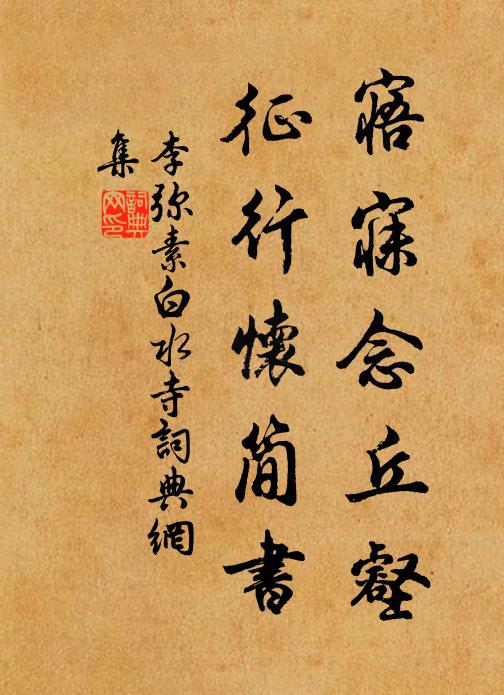 寤寐念丘壑
征行懷簡書
李弥素白水寺詞典網
集
詞典網印